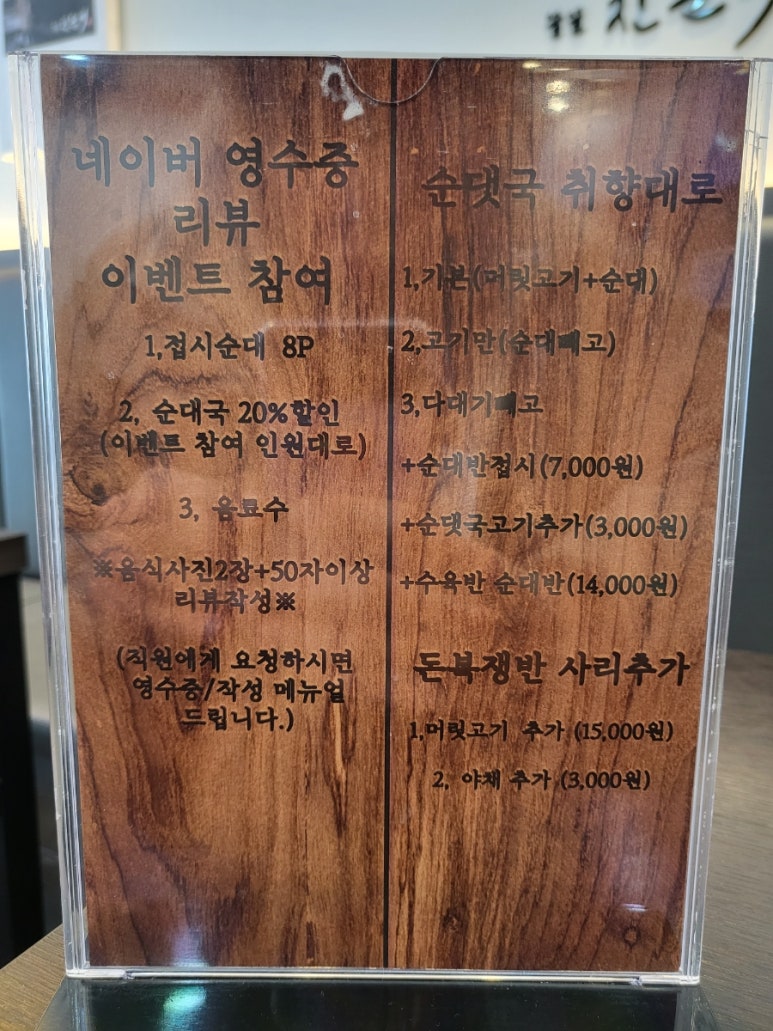 네이버 영수증
리뷰
이벤트 참여
1,접시순대 8P
2, 순대국 20%할인
(이벤트 참여 인원대로)
3, 음료수
※음식사진2장+50자이상
리뷰작성※
(직원에게 요청하시면
영수증/작성 메뉴얼
드립니다.)
순댓국 취향대로
1,기본(머릿고기+순대)
2,고기만(순대빼고)
3,다대기빼고
+순대반접시(7,000원)
+순댓국고기추가(3,000원)
+수육반 순대반(14,000원)
돈북쟁반 사리추가
1,머릿고기 추가 (15,000원)
2, 야채 추가 (3,000원)